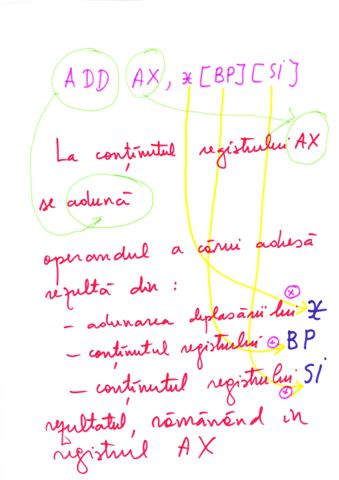 ADD AX, x[BP][Si]
La conținutul registrului AX
se adună
operandul a cărui adresă
rezultă din:
- adunarea deplasării lui x
- conținutul registrului + BP
- conținutul registrului Si
+
rezultatul, rămânând în
registrul AX